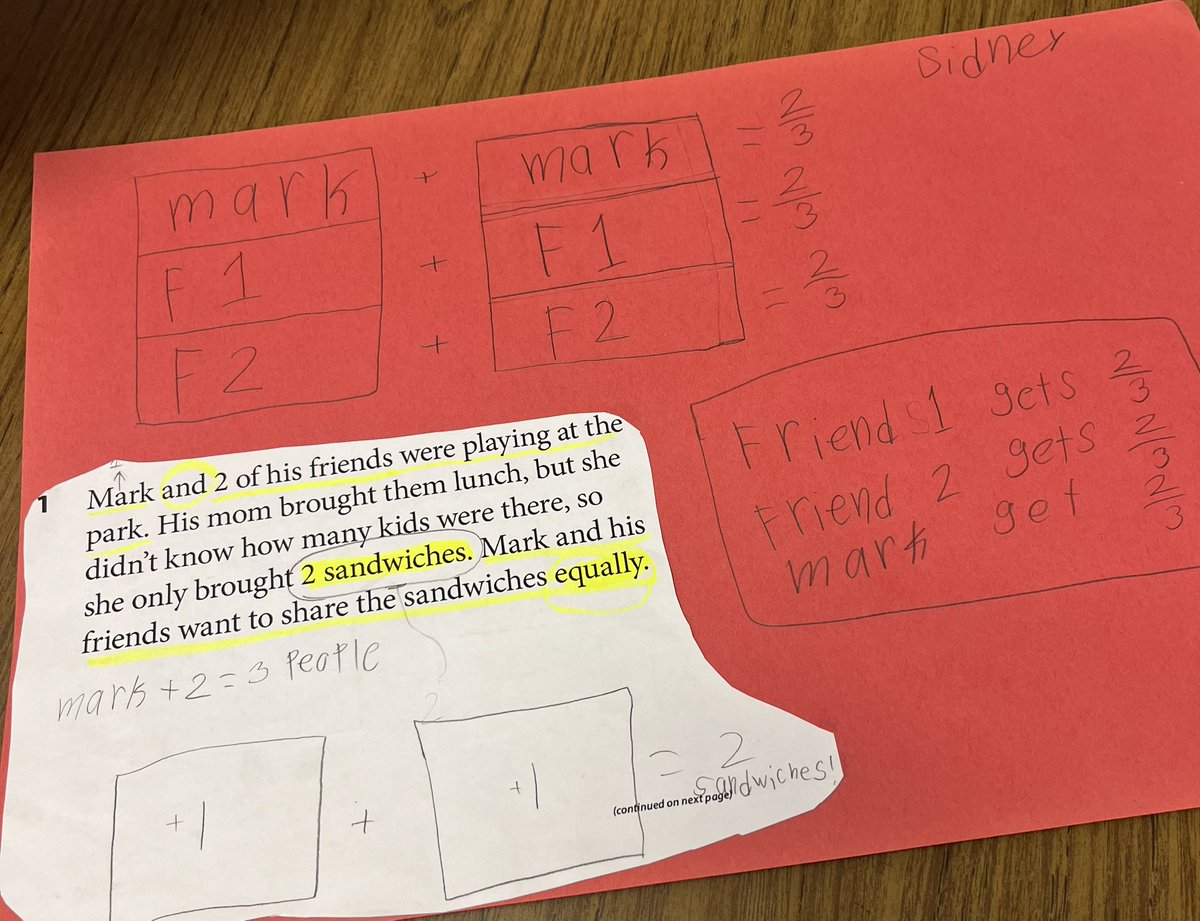 Sidney
mark + mark = 2/3
F1 + F1 = 2/3
F2 + F2 = 2/3
Friend 1 gets 2/3
Friend 2 gets 2/3
mark get 2/3
1
1 Mark and 2 of his friends were playing at the
park. His mom brought them lunch, but she
didn't know how many kids were there, so
she only brought 2 sandwiches. Mark and his
friends want to share the sandwiches equally.
mark + 2 = 3 People
2
+1 + +1 = 2
sandwiches!
(continued on next page)